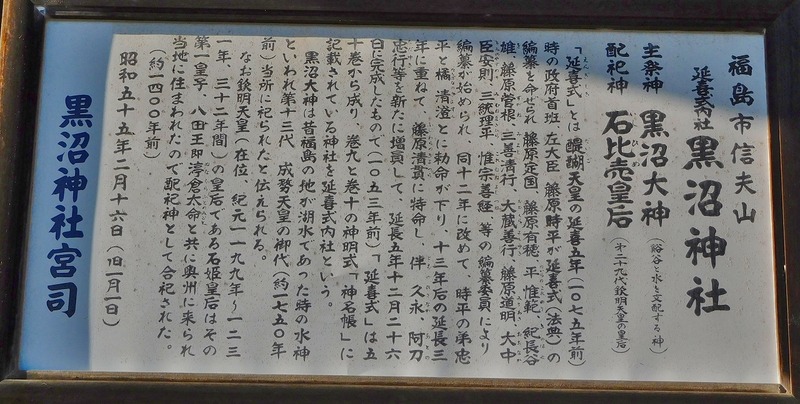 福島市信夫山
延喜式内社 黒沼神社
主祭神 黒沼大神 (谿谷と水を支配する神)
配祀神 石比売皇后 (才二十九代欽明天皇の皇后)
「延喜式」とは醍醐天皇の延喜五年(一〇七五年前)
時の政府首班 左大臣 藤原時平が延喜式(法典)の
編纂を命ぜられ 藤原定国、藤原有穂、平 惟範、紀長谷
雄、藤原菅根、三善清行、大蔵善行、藤原道明、大中
臣安則、三統理平、惟宗善経、等の編纂委員により
編纂が始められ、同十二年に改めて、時平の弟忠
平と橘 清澄とに勅命が下り、十三年后の延長三
年に重ねて、藤原清貫に特命し 伴 久永、阿刀
忠行等を新たに増員して、延長五年十二月二十六
日に完成したもので(一〇五三年前)「延喜式」は五
十巻から成り、巻九と巻十の神明式「神名帳」に
記載されている神社を延喜式内社という。
黒沼大神は昔福島の地が湖水であった時の水神
といわれ第十三代 成務天皇の御代(約一七五〇年
前)当所に祀られたと伝えられる。
なお欽明天皇(在位、紀元一一九九年〜一二三
一年、三十二年間)の皇后である石姫皇后はその
第一皇子、八田王即渟倉太命と共に奥州に来られ
当地に住まわれたので配祀神として合祀された。
(約一四〇〇年前)
昭和五十五年二月十六日(旧一月一日)
黒沼神社宮司